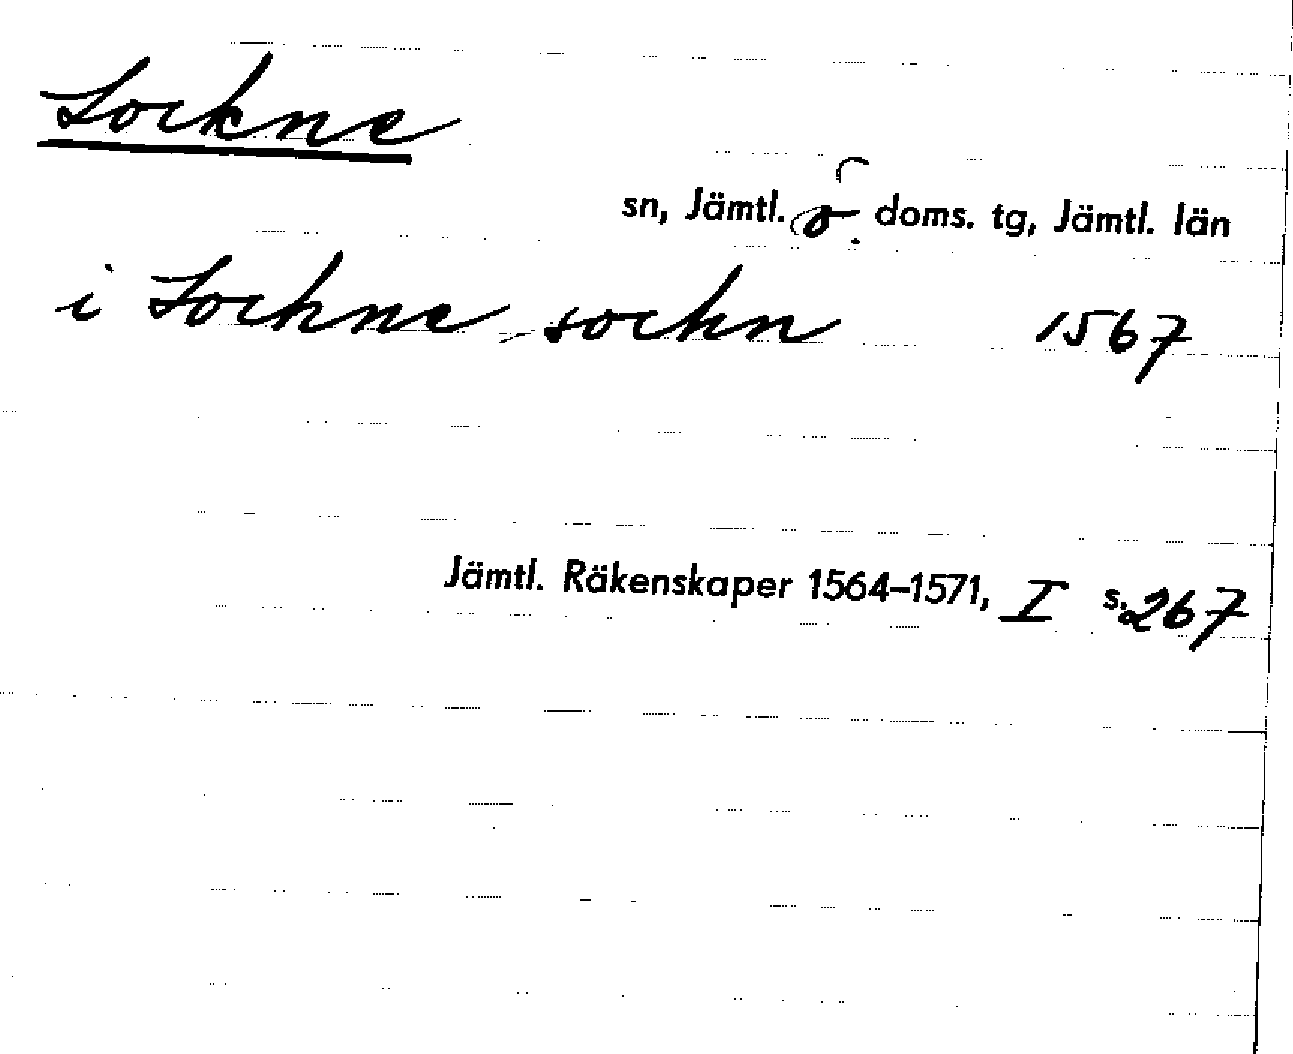 Lockne
sn, Jämtl. ö. doms. tg, Jämtl. län
i Lockne sockn 1567
Jämtl. Räkenskaper 1564–1571, I s. 267